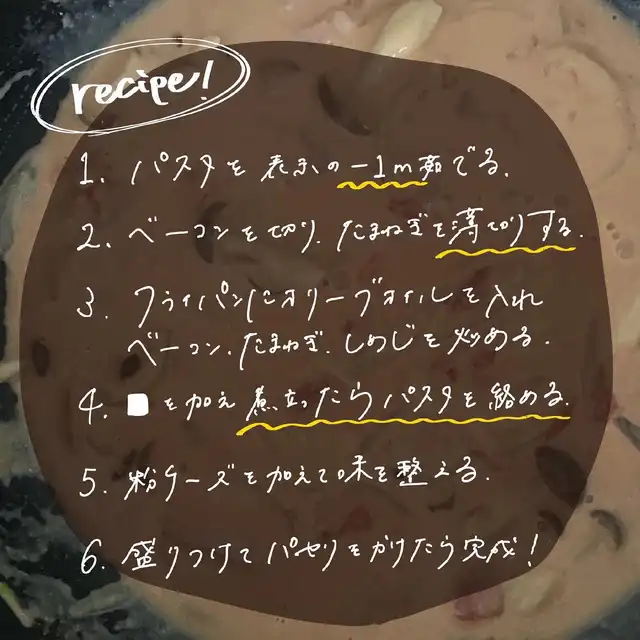 recipe!
1. パスタを表示の-1m茹でる.
2. ベーコンを切り.たまねぎを薄切りする.
3. フライパンにオリーブオイルを入れ
ベーコン.たまねぎ.しめじを炒める.
4. ■を加え煮立ったらパスタを絡める.
5. 粉チーズを加えて味を整える.
6. 盛りつけてパセリをかけたら完成!